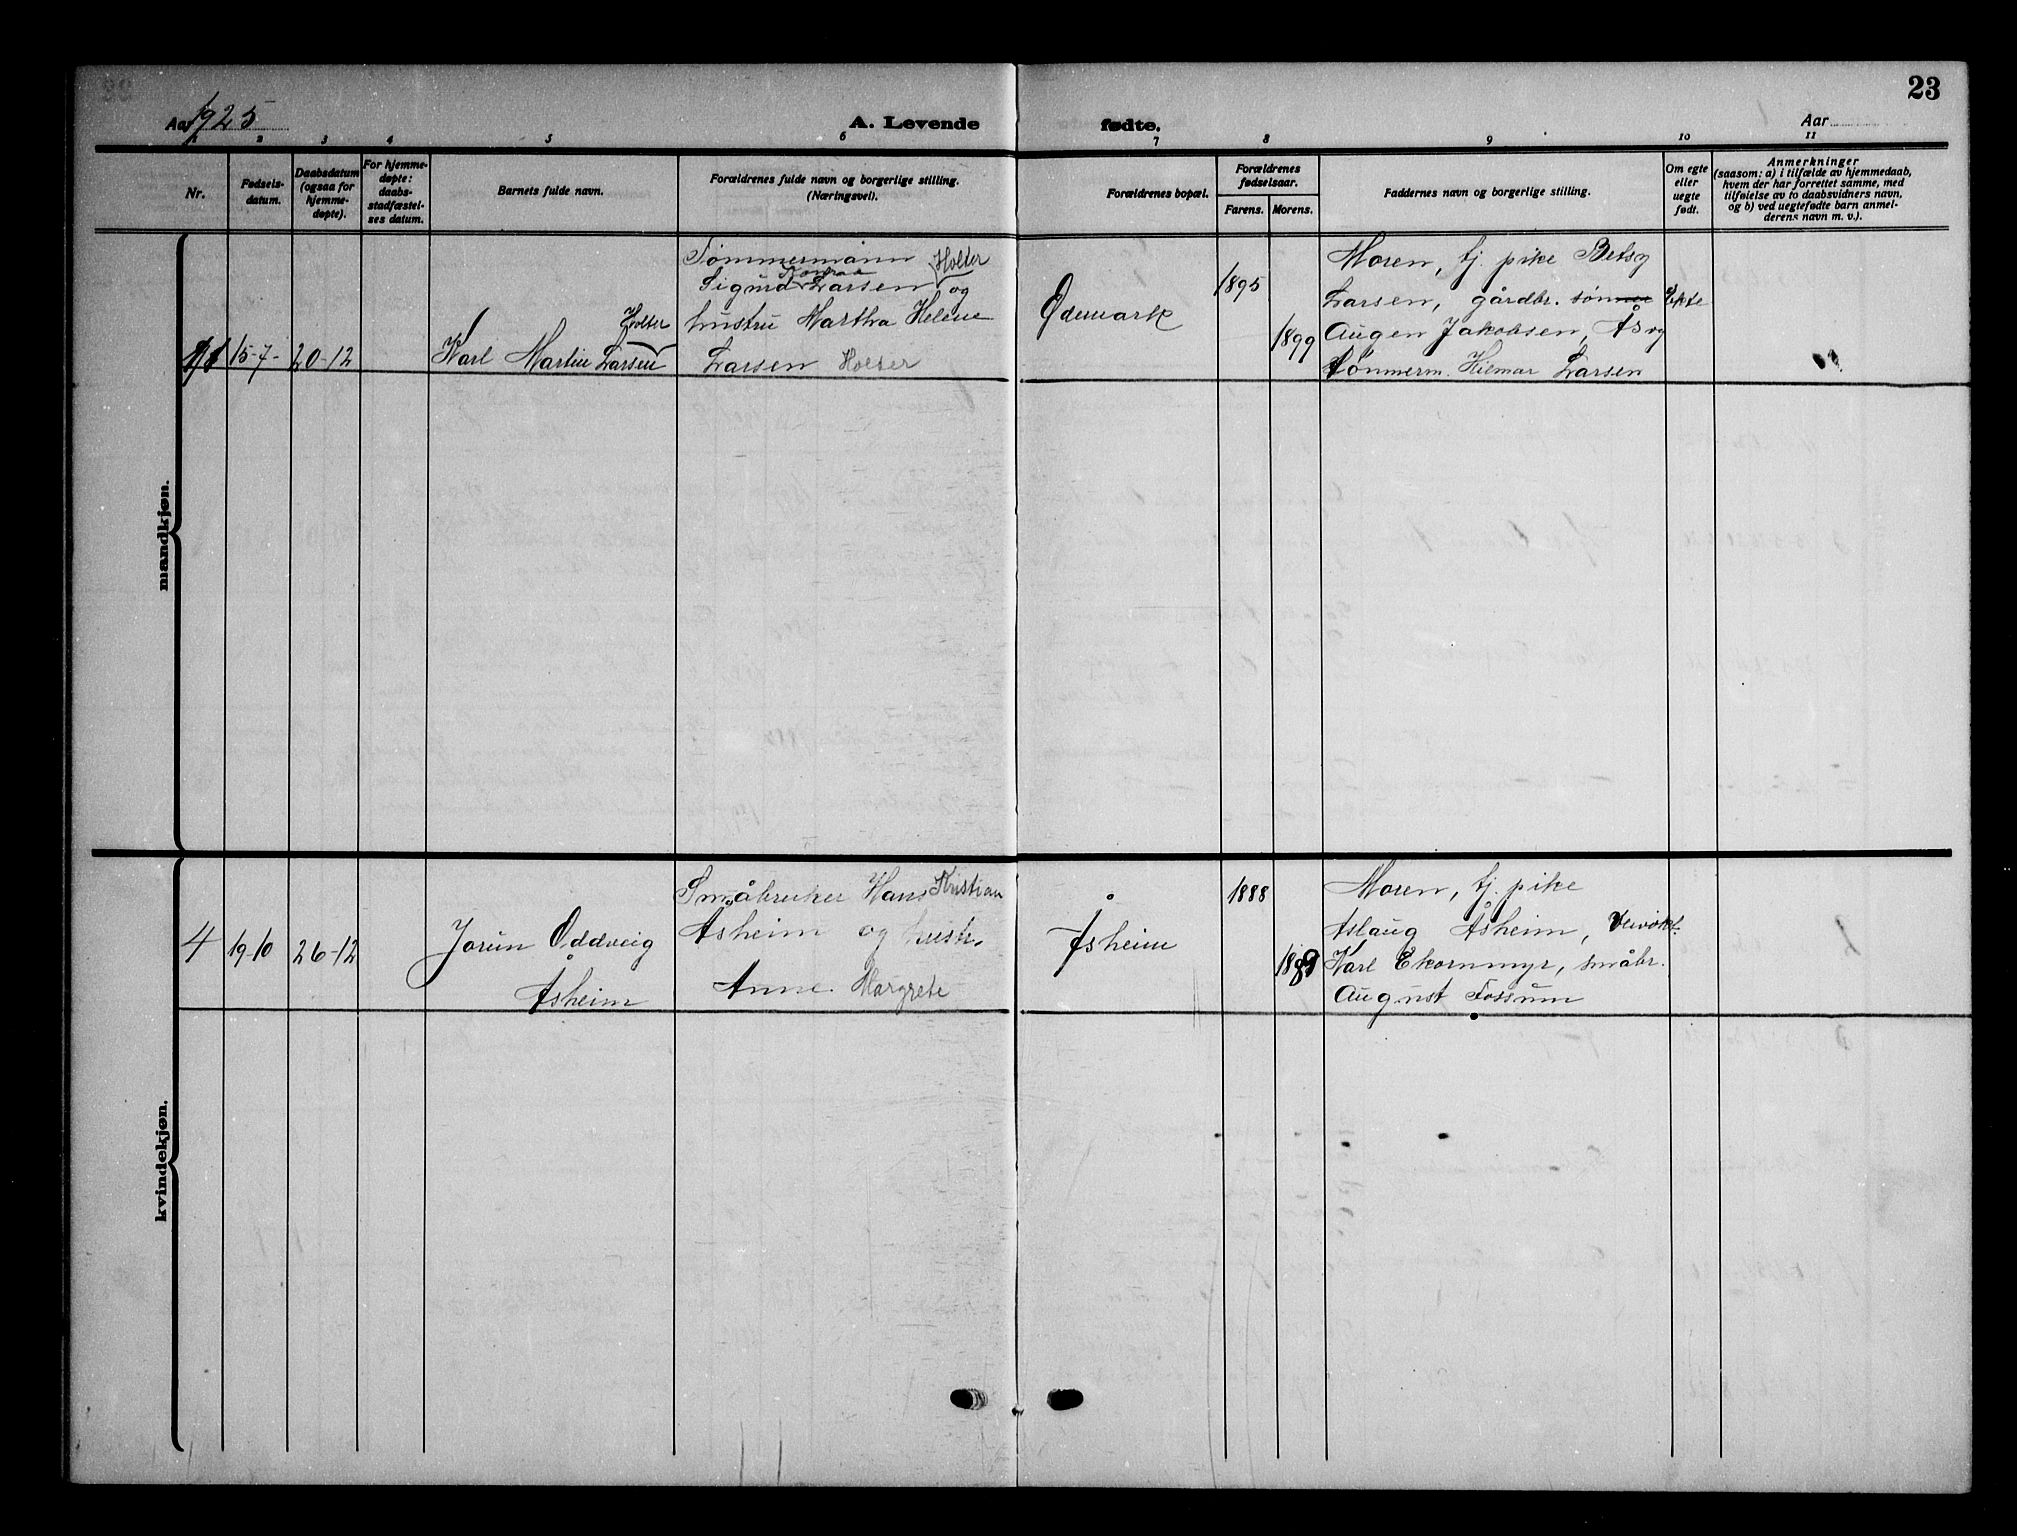 23
Aar 1925
A. Levende fødte.
Aar
1 2 3 4 5 6 7 8 9 10 11
Nr.
Fødsels-
datum.
Daabsdatum
(ogsaa for
hjemme-
døpte).
For hjemme-
døpte:
daabs-
stadfæstel-
ses datum.
Barnets fulde navn.
Forældrenes fulde navn og borgerlige stilling.
(Næringsvei).
Forældrenes bopæl.
Forældrenes
fødselsaar.
Farens. Morens.
Faddernes navn og borgerlige stilling.
Om egte
eller
uegte
født.
Anmerkninger
(saasom: a) i tilfælde av hjemmedaab,
hvem der har forrettet samme, med
tilføielse av to daabsvidners navn,
og b) ved uegtefødte barn anmel-
derens navn m. v.).
mandkjøn.
11
15-7-
20-12
Holter
Karl Martin Larsen
Tømmermann Holter
Konrad
Sigurd Larsen og
hustru Martha Helene
Larsen Holter
Ødemark
1895
1899
Moren, tj. pike Betsy
Larsen, gårdbr.
Augen Jakobsen, Ås og
tømmerm. Hilmar Larsen
ekte
kvindekjøn.
4
19-10
26-12
Jorun Oddveig
Åsheim
Småbruker Hans Kristian
Åsheim og hustr.
Anne Margrete
Åsheim
1888
1889
Moren, tj. pike
Aslaug Åsheim,
Karl Ekornmyr, småbr.
August Fossum